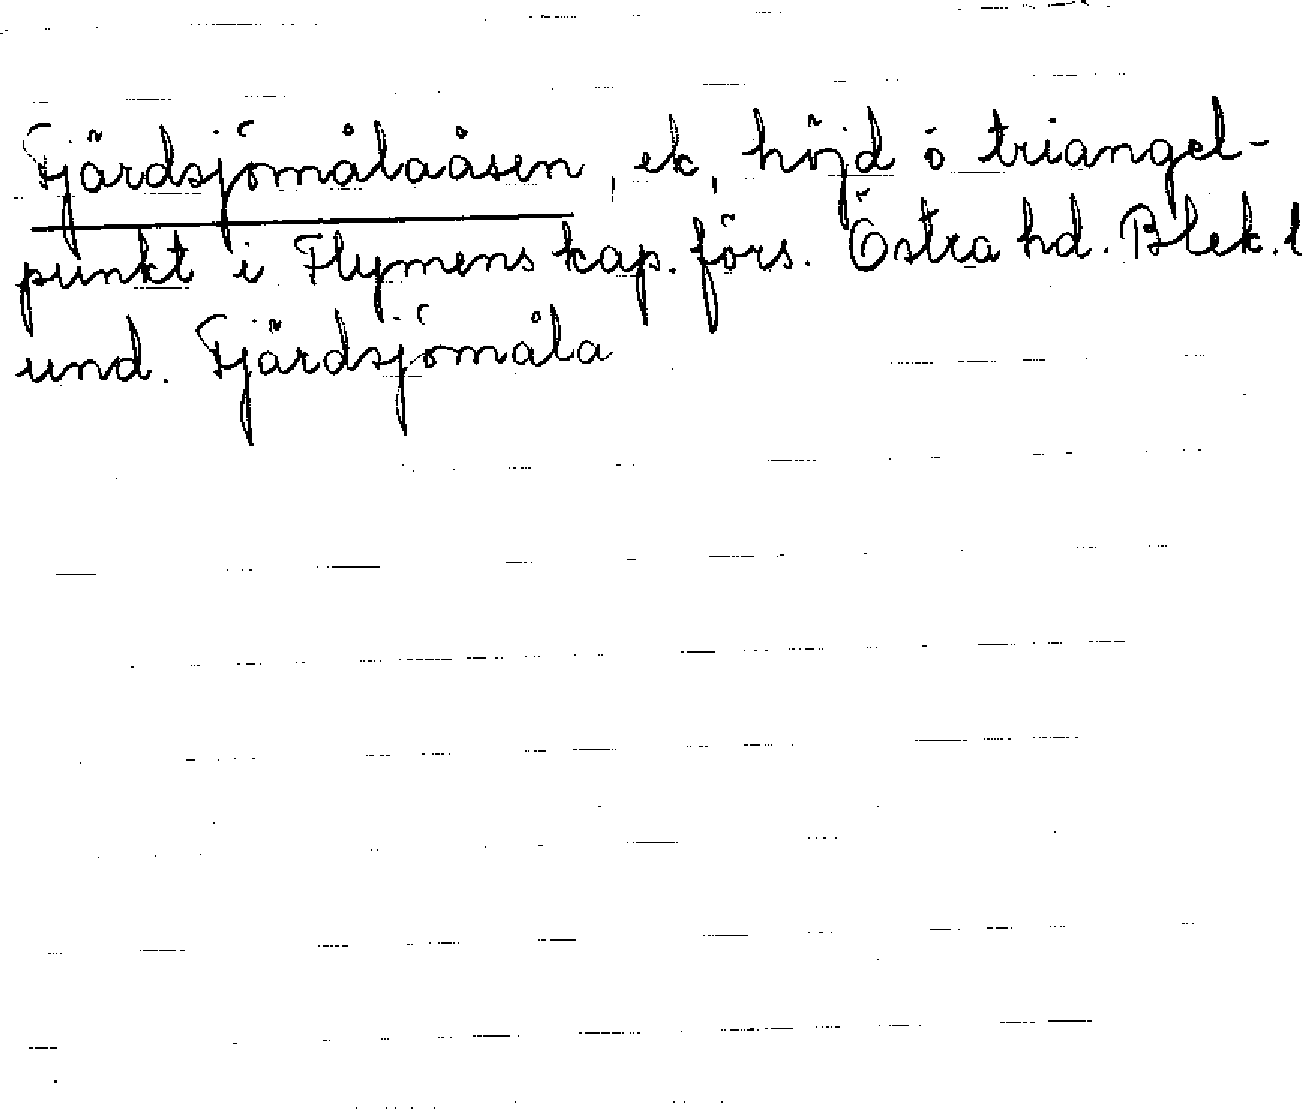 Fjärdsjömålaåsen, ek, höjd o triangel-
punkt i Flymens kap. förs. Östra hd. Blek. l
und. Fjärdsjömåla